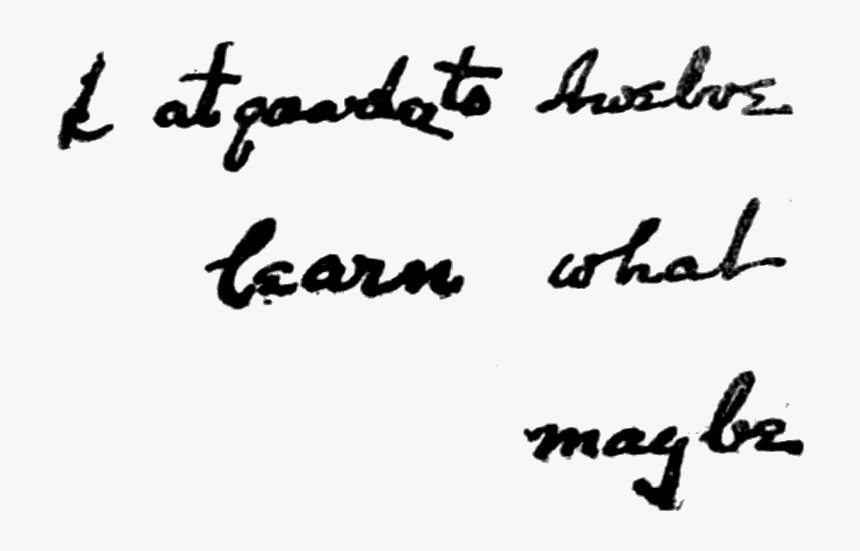 at to twelve
learn what
maybe